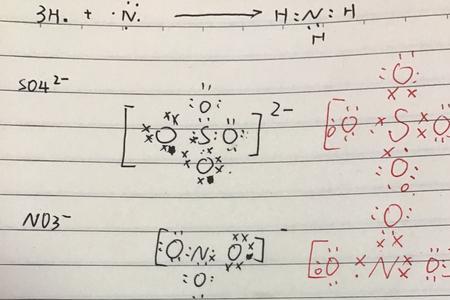 3H. + ·N̈. ⟶ H:N̈:H
H
SO4²⁻
[O O S O O]²⁻
O
O S O
O
NO3⁻
[O N O O]⁻
O
O N O